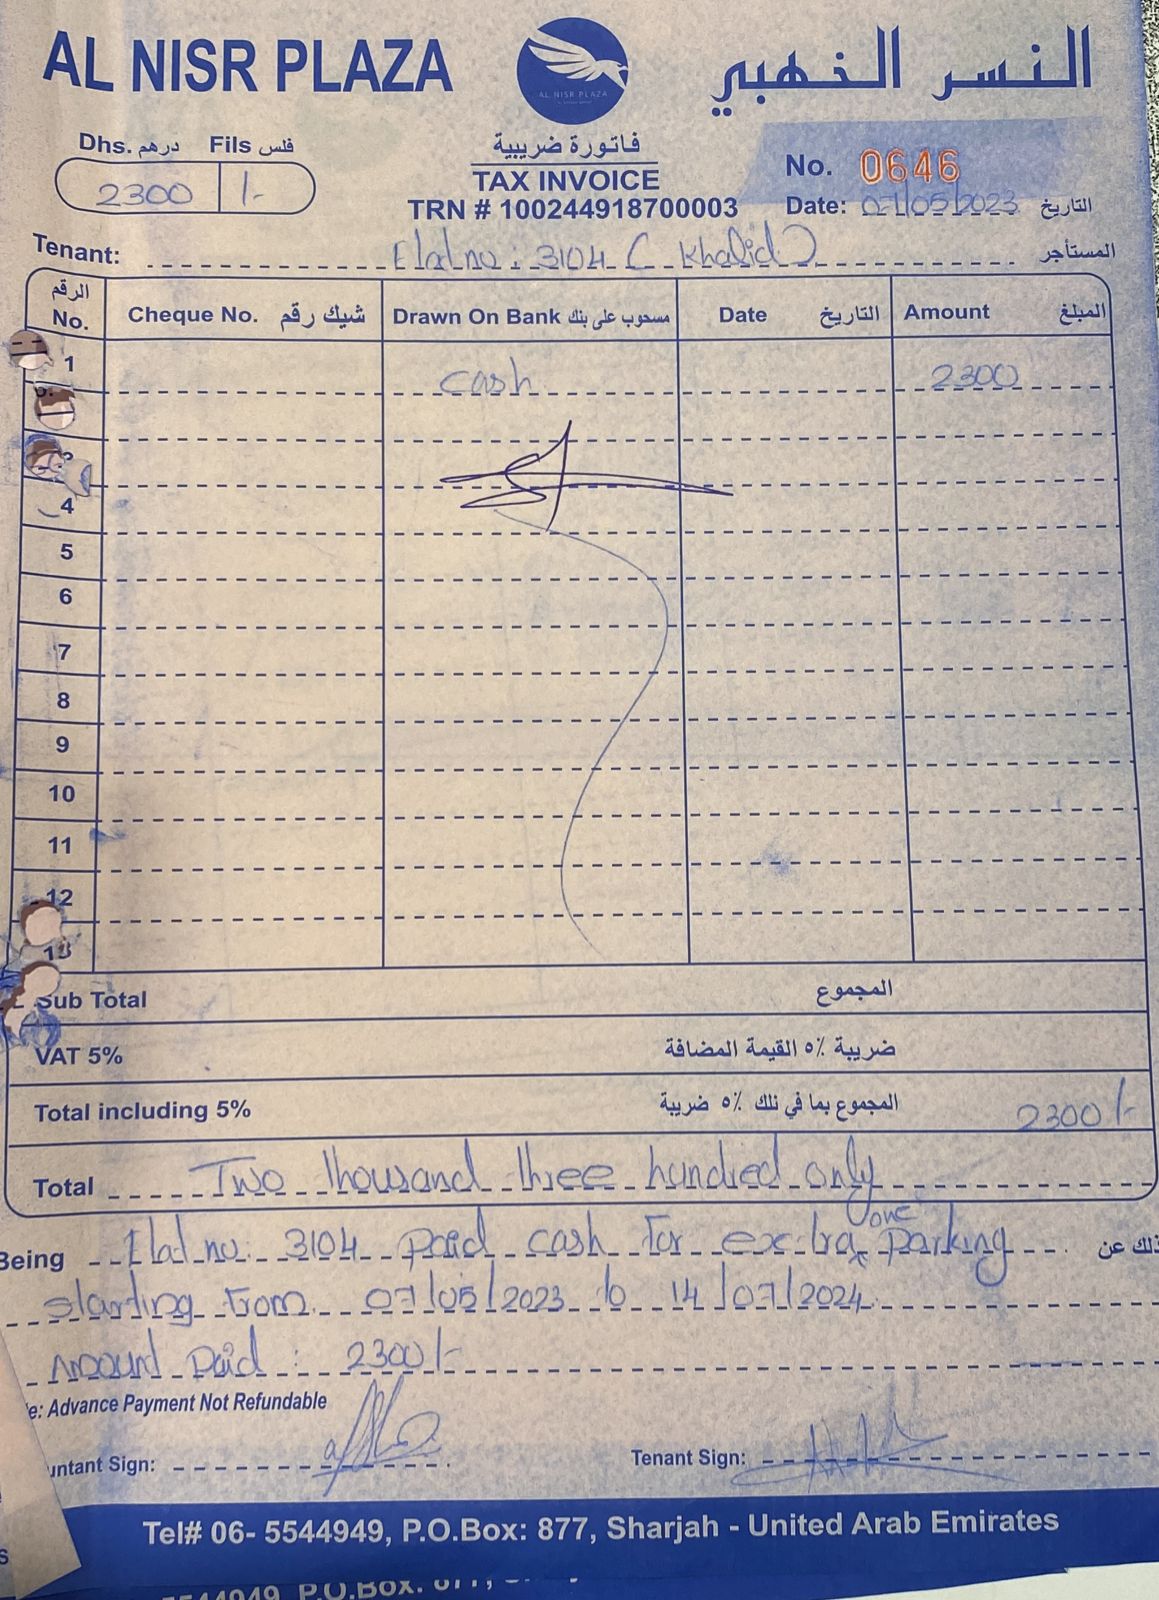 AL NISR PLAZA
النسر الذهبي
AL NISR PLAZA
Dhs. درهم Fils فلس
2300 /-
فاتورة ضريبية
TAX INVOICE
TRN # 100244918700003
No. 0646
Date: 07/05/2023 التاريخ
Tenant: Flat no : 3104 ( Khalid ) المستأجر
الرقم No. Cheque No. شيك رقم Drawn On Bank مسحوب على بنك Date التاريخ Amount المبلغ
1 cash 2300
4
5
6
7
8
9
10
11
12
13
Sub Total المجموع
VAT 5% ضريبة ٥٪ القيمة المضافة
Total including 5% المجموع بما في ذلك ٥٪ ضريبة 2300/-
Total Two thousand three hundred only
Being Flat no: 3104 paid cash for extra one parking ذلك عن
starting from 07/05/2023 to 14/07/2024
Amount Paid : 2300/-
e: Advance Payment Not Refundable
untant Sign:
Tenant Sign:
Tel# 06- 5544949, P.O.Box: 877, Sharjah - United Arab Emirates
5544949, P.O.Box: